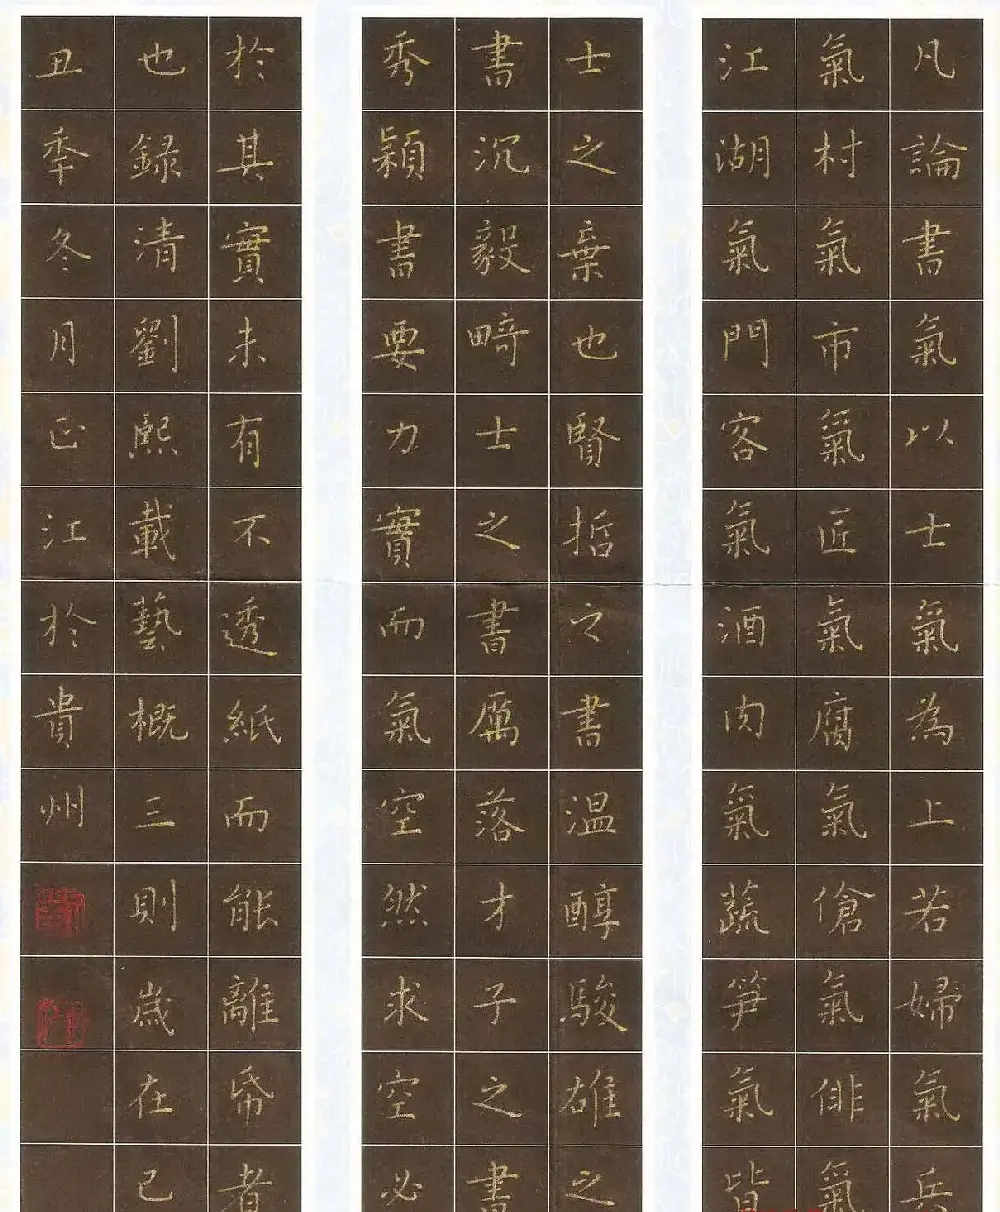 凡論書氣以士氣為上若婦氣兵
氣村氣市氣匠氣腐氣傖氣俳氣
江湖氣門客氣酒肉氣蔬笋氣皆
士之棄也賢哲之書温醇駿雄之
書沉毅畸士之書厲落才子之書
秀穎書要力實而氣空然求空必
於其實未有不透紙而能離帋者
也録清劉熙載藝概三則歲在己
丑秊冬月正江於貴州